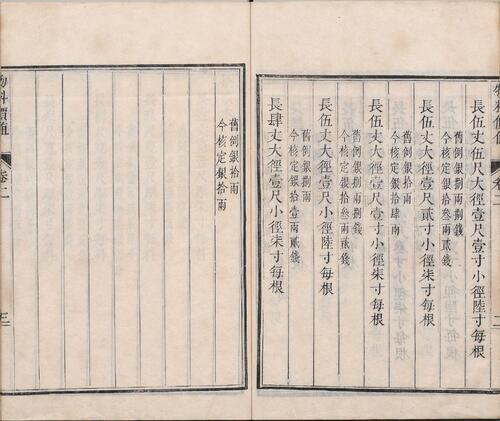 長伍丈伍尺大徑壹尺壹寸小徑陸寸每根
舊例銀捌兩捌錢
今核定銀拾叁兩貳錢
長伍丈大徑壹尺貳寸小徑柒寸每根
舊例銀拾兩
今核定銀拾肆兩
長伍丈大徑壹尺壹寸小徑柒寸每根
舊例銀捌兩捌錢
今核定銀拾叁兩貳錢
長伍丈大徑壹尺小徑陸寸每根
舊例銀捌兩
今核定銀拾壹兩貳錢
長肆丈大徑壹尺小徑柒寸每根
卷二
二
舊例銀拾兩
今核定銀拾兩
物料價值
卷二
三